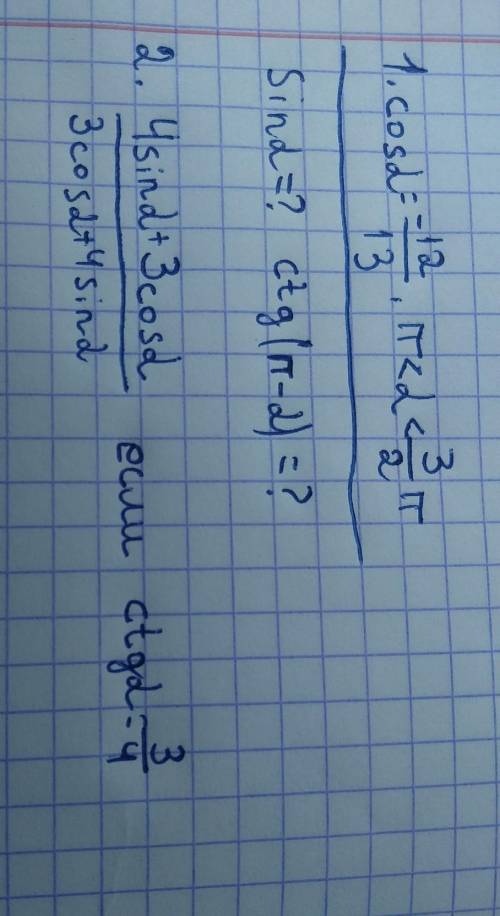 1. cosα = -12/13, π < α < 3/2 π
Sinα = ? ctg(π-α) = ?
2. 4sinα + 3cosα / 3cosα + 4sinα если ctgα = 3/4